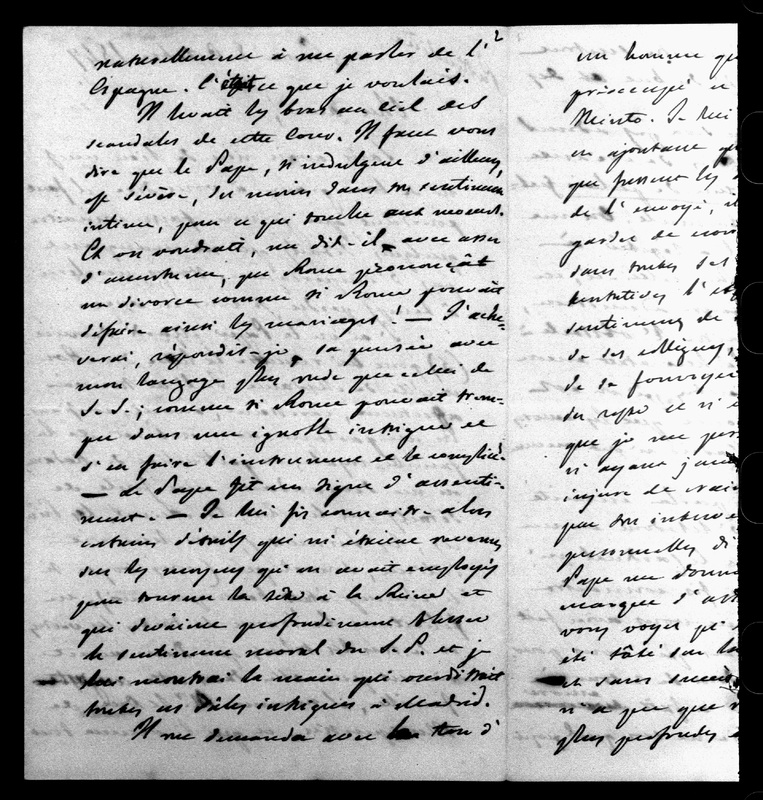 2
naturellement à me parler de l'
Espagne. C'était ce que je voulais.
Il levait les bras au ciel des
scandales de cette Cour. Il faut vous
dire que le Pape, si indulgent d'ailleurs,
est sévère, du moins dans son sentiment
intime, pour ce qui touche aux mœurs.
Et on voudrait, me dit-il, avec assez
d'amertume, que Rome prononçât
un divorce comme si Rome pouvait
défaire ainsi les mariages! — J'ache-
verai, répondis-je, sa pensée avec
mon langage plus rude que celui de
S. S.; comme si Rome pouvait trem-
per dans une ignoble intrigue et
s'en faire l'instrument et le complice.
— Le Pape fit un signe d'assenti-
ment. — Je lui fis connaître alors
certains détails qui m'étaient revenus
sur les moyens qu'on avait employés
pour tourner la tête à la Reine et
qui devaient profondément blesser
le sentiment moral du S. P. et je
lui montrai la main qui ourdissait
toutes ces sales intrigues à Madrid.
Il me demanda avec un ton d'
un homme qu
préoccupé
Minto. Je lui
en ajoutant
que pressent les
de l'envoyé,
garder de
dans toutes ses
tentatives
sentiment de
de ses collègues,
de se
du reste
que je me
n'ayant
injure de
par son
personnelles
Pape me donn
marque d'
vous voyez
été tâté sur
et sans
n'a pu que
plus profondes